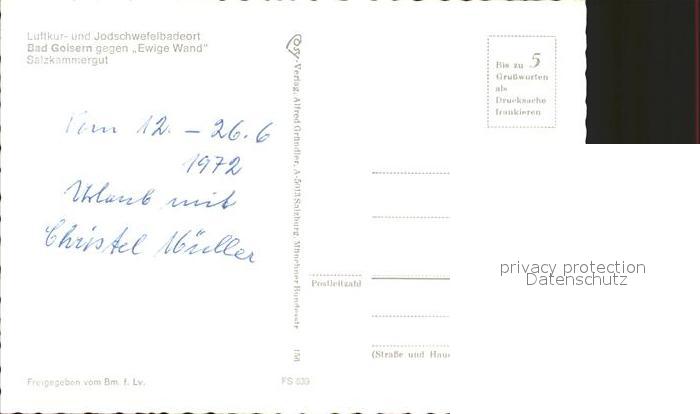 Luftkur- und Jodschwefelbadeort
Bad Goisern gegen „Ewige Wand"
Salzkammergut
Vom 12. – 26.6
1972
Urlaub mit
Christel Müller
Freigegeben vom Bm. f. Lv.
Cosy-Verlag, Alfred Gründler, A-5013 Salzburg, Münchner Bundesstr. 156
FS 839
Bis zu 5
Grußworten
als
Drucksache
frankieren
Postleitzahl
(Straße und Haus
privacy protection
Datenschutz